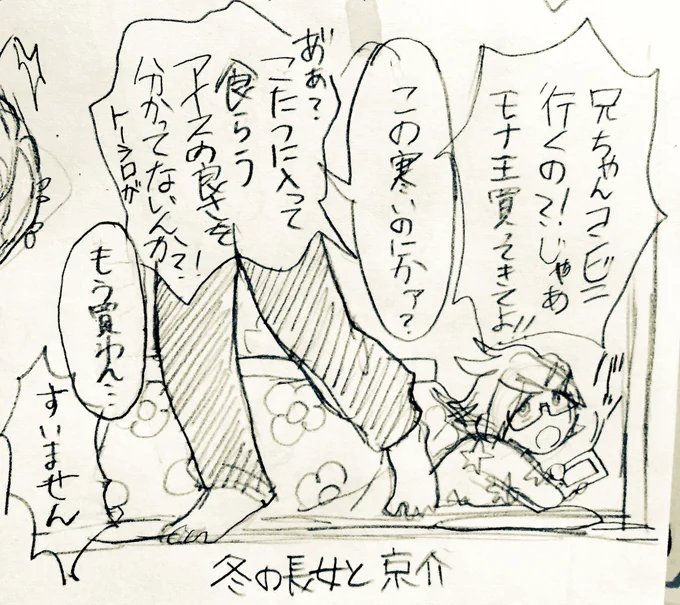 兄ちゃんコンビニ
行くの?!じゃあ
モナ王買ってきてよ!!
この寒いのにかァ?
あぁ?
こたつに入って
食らう
アイスの良さを
分かってないんか?!
トーシロが
もう買わん…
すいません
冬の長女と京介